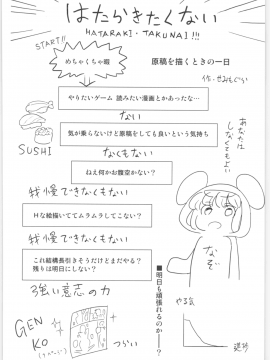 はたらきたくない
HATARAKI・TAKUNAI!!!
START!!
めちゃくちゃ暇
原稿を描くときの一日
やりたいゲーム 読みたい漫画とかあったな…
ない
気が乗らないけど原稿をしても良いという気持ち
SUSHI
なくもない
ねえ何かお腹空かない?
我慢できなくもない
Hな絵描いててムラムラしてこない?
我慢できなくもない
これ結構長引きそうだけどまだやる?
残りは明日にしない?
強い意志の力
GEN
KO
つらい
あなたは
しなくてもよい
なぞ
やる気
■明日も頑張れるのか――?